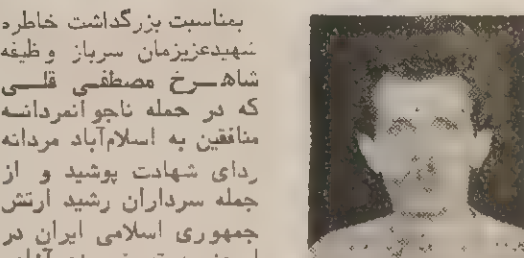 بمناسبت بزرگداشت خاطره
شهیدعزیزمان سرباز وظیفه
شاهـــرخ مصطفـی قلـــی
که در حمله ناجوانمردانـه
منافقین به اسلام‌آباد مردانه
ردای شهادت پوشید و از
جمله سرداران رشید ارتش
جمهوری اسلامی ایران در